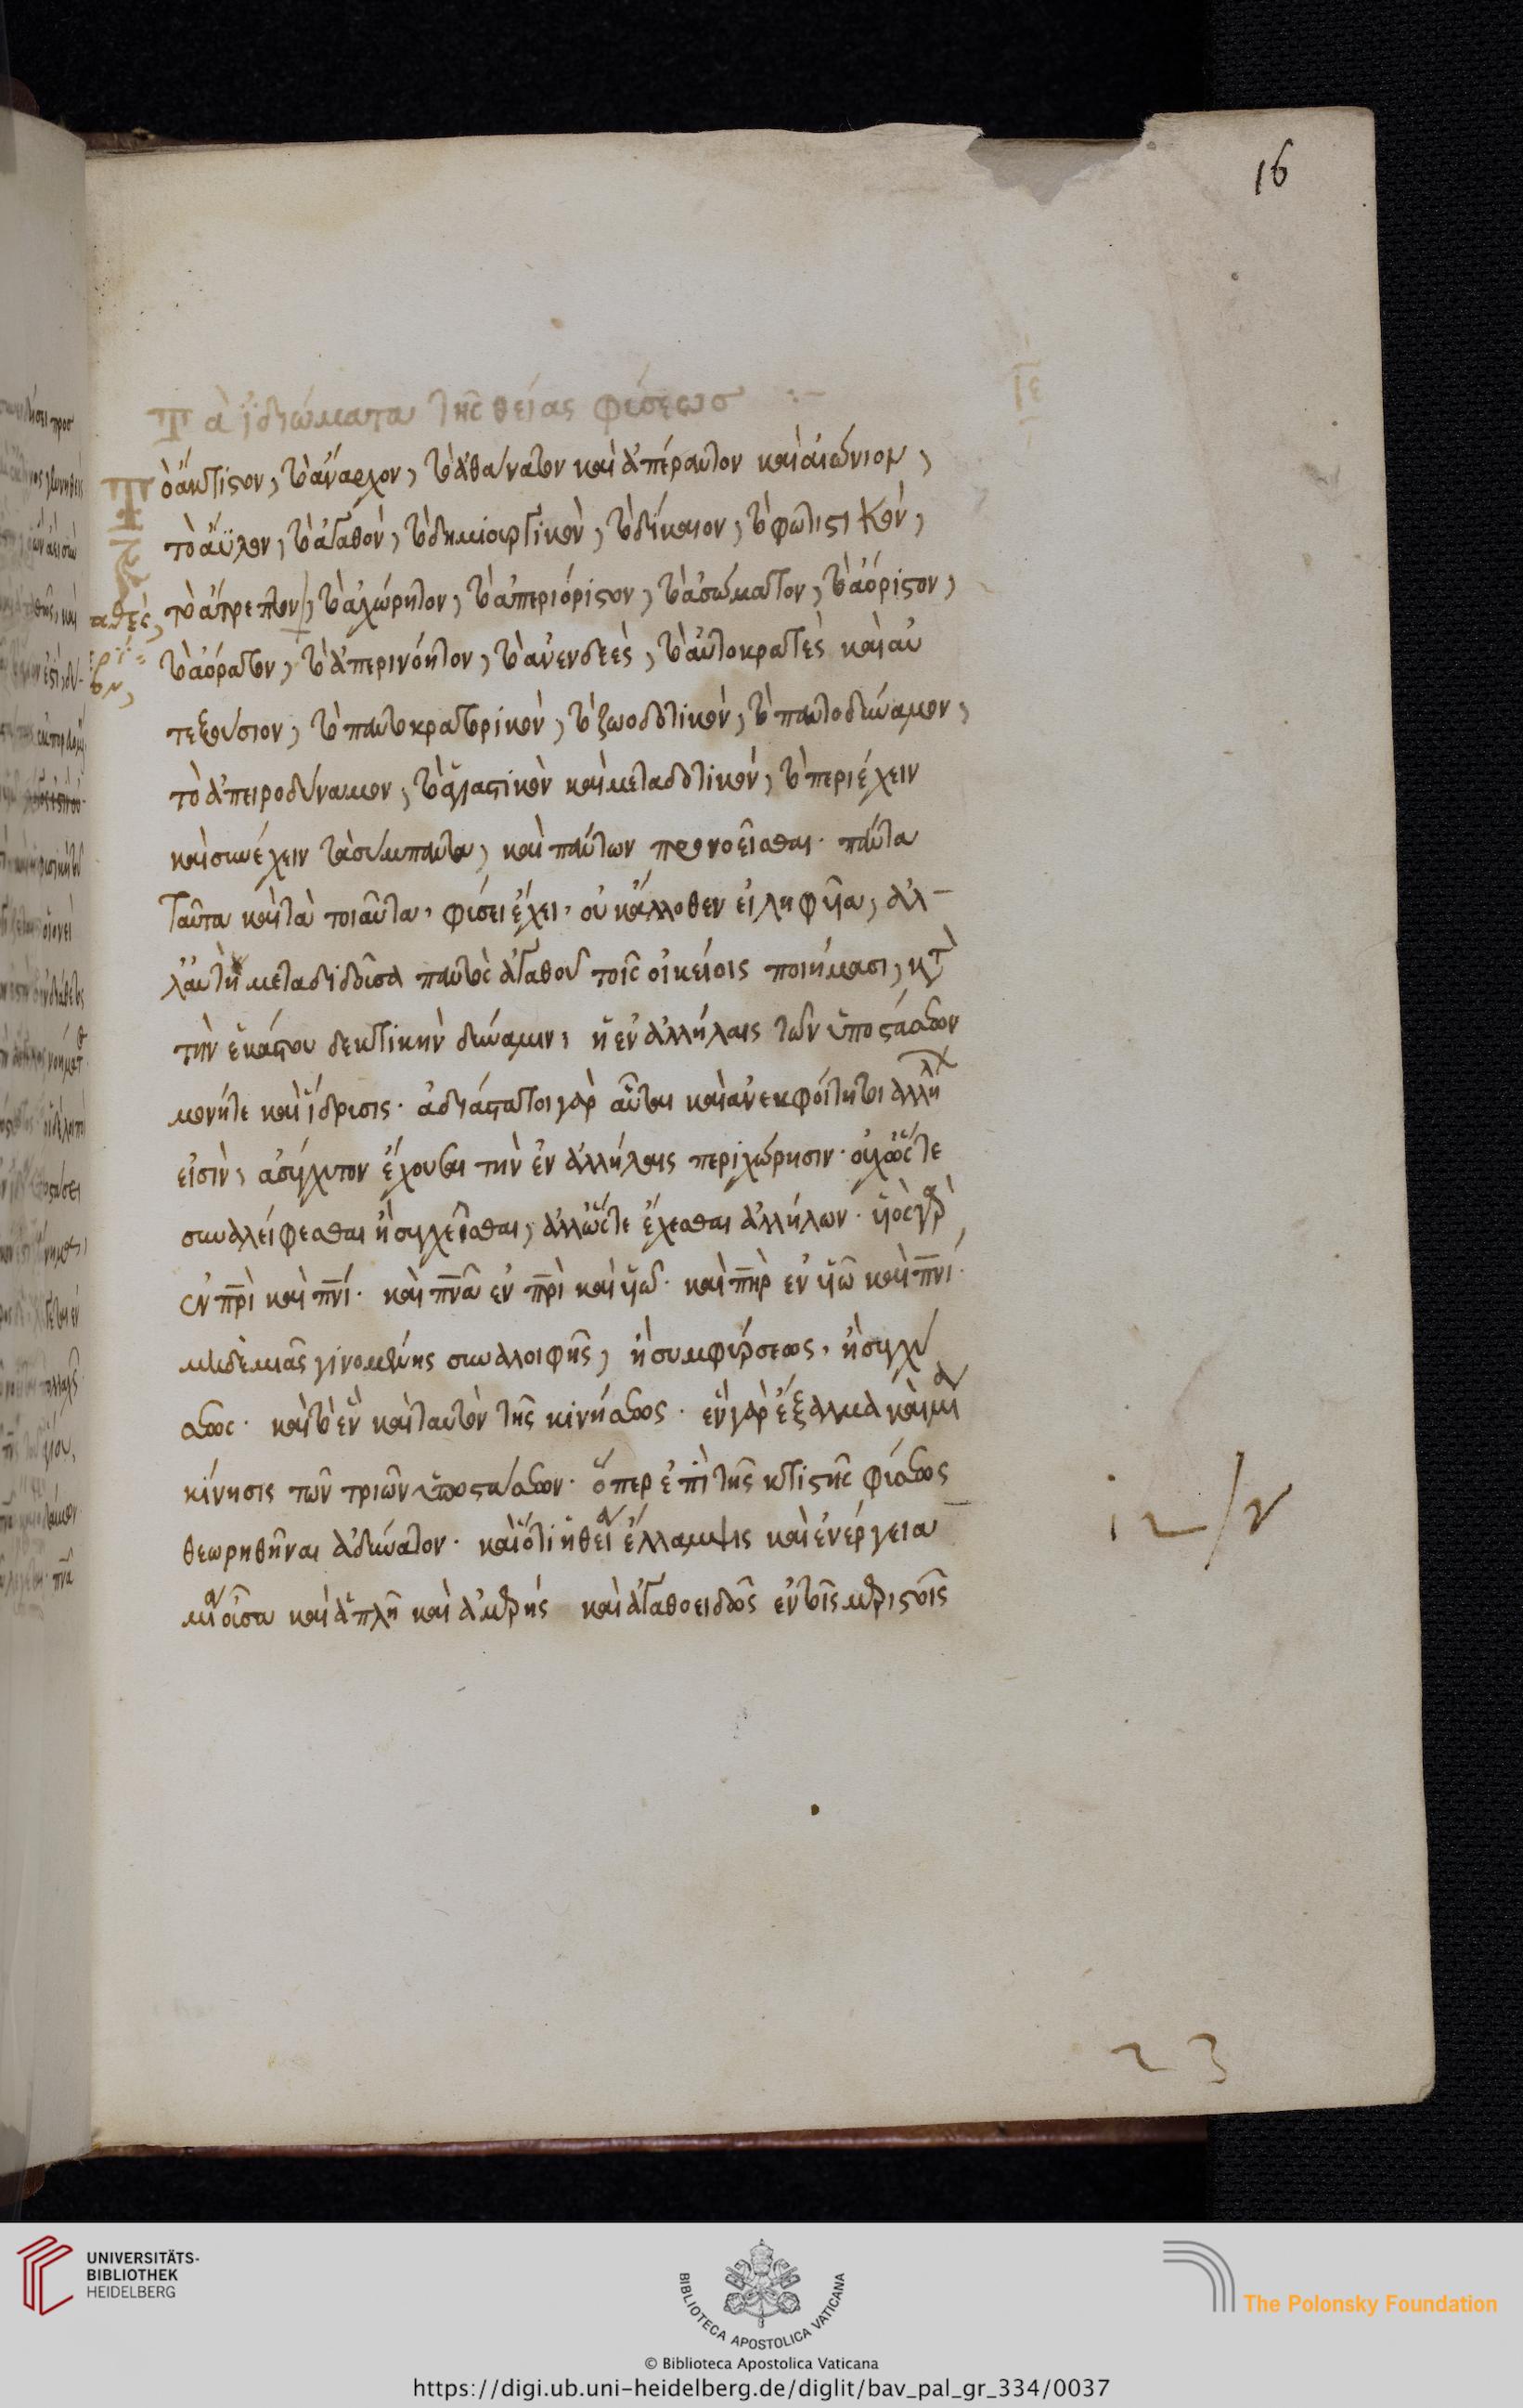 16
Τὰ ἰδιώματα τῆς θείας φύσεως :–
ιε
Τὸ ἄκτιστον, τὸ ἄναρχον, τὸ ἀθάνατον καὶ ἀπέραντον καὶ αἰώνιον,
τὸ ἄϋλον, τὸ ἀγαθὸν, τὸ δημιουργικὸν, τὸ δίκαιον, τὸ φωτιστικὸν,
τὸ ἄτρεπτον, τὸ ἀχώρητον, τὸ ἀπεριόριστον, τὸ ἀσώματον, τὸ ἀόριστον,
τὸ ἀόρατον, τὸ ἀπερινόητον, τὸ ἀνενδεὲς, τὸ αὐτοκρατὲς καὶ αὐ
τεξούσιον, τὸ παντοκρατορικὸν, τὸ ζωοδοτικὸν, τὸ παντοδύναμον,
τὸ ἀπειροδύναμον, τὸ ἁγιαστικὸν καὶ μεταδοτικὸν, τὸ περιέχειν
καὶ συνέχειν τὰ σύμπαντα, καὶ πάντων προνοεῖσθαι· πάντα
ταῦτα καὶ τὰ τοιαῦτα, φύσει ἔχει, οὐκ ἄλλοθεν εἰληφυῖα, ἀλ–
λ' αὐτὴ μεταδιδοῦσα παντὸς ἀγαθοῦ τοῖς οἰκείοις ποιήμασι, κτ
τὴν ἑκάστου δεκτικὴν δύναμιν, ἡ ἐν ἀλλήλαις τῶν ὑποστάσεων
μονή τε καὶ ἵδρυσις· ἀδιάστατοι γὰρ αὗται καὶ ἀνεκφοίτητοι ἀλλήλ
εἰσὶν, ἀσύγχυτον ἔχουσαι τὴν ἐν ἀλλήλαις περιχώρησιν· οὐχ ὥστε
συναλείφεσθαι ἢ συγχεῖσθαι, ἀλλ' ὥστε ἔχεσθαι ἀλλήλων· υἱὸς γὰρ
ἐν πρὶ καὶ πνί· καὶ πνα ἐν πρὶ καὶ υἱῶ· καὶ πὴρ ἐν υἱῶ καὶ πνί·
μηδεμιᾶς γινομένης συναλοιφῆς, ἢ συμφύρσεως, ἢ συγχύ
σεως· καὶ τὸ ἓν καὶ ταυτὸν τῆς κινήσεως· ἓν γὰρ ἔξαλμα καὶ μία
κίνησις τῶν τριῶν ὑποστάσεων· ὅπερ ἐπὶ τῆς κτιστῆς φύσεως
θεωρηθῆναι ἀδύνατον· καὶ ὅτι ἡ θεία ἔλλαμψις καὶ ἐνέργεια
μία οὖσα καὶ ἁπλῆ καὶ ἀμερής καὶ ἀγαθοειδῶς ἐν τοῖς μεριστοῖς
23
UNIVERSITÄTS-
BIBLIOTHEK
HEIDELBERG
BIBLIOTECA APOSTOLICA VATICANA
The Polonsky Foundation
© Biblioteca Apostolica Vaticana
https://digi.ub.uni-heidelberg.de/diglit/bav_pal_gr_334/0037